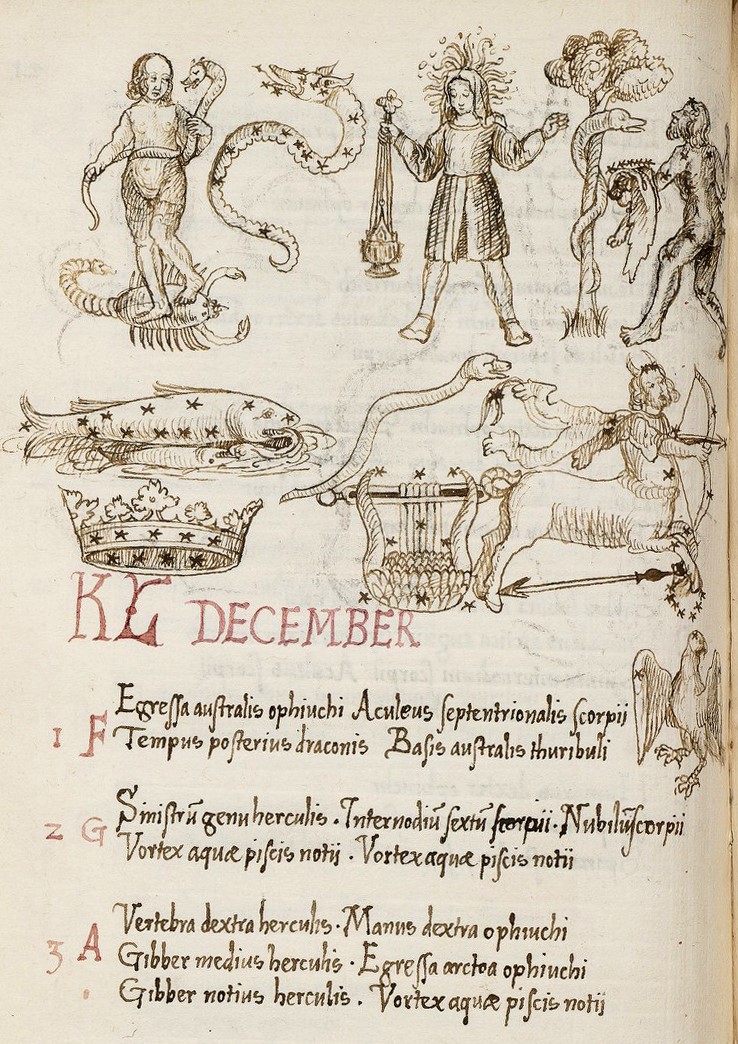 KL DECEMBER
Egressa australis ophiuchi Aculeus septentrionalis scorpii
1 F Tempus posterius draconis Basis australis thuribuli
Sinistrũ genu herculis · Internodiũ sextũ scorpii · Nubilũ scorpii
2 G Vortex aquæ piscis notii · Vortex aquæ piscis notii
Vertebra dextra herculis · Manus dextra ophiuchi
3 A Gibber medius herculis · Egressa arctoa ophiuchi
Gibber notius herculis . Vortex aquæ piscis notij